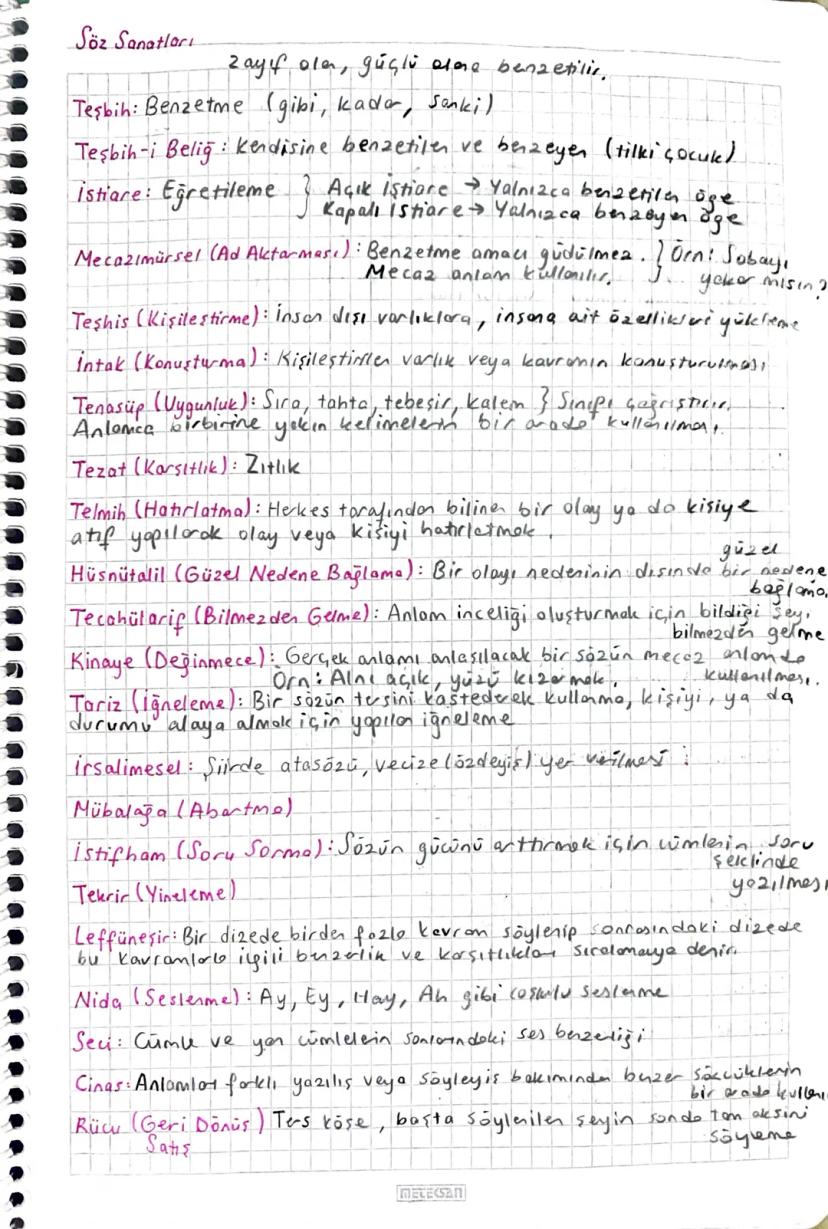 Söz Sanatları
zayıf olan, güçlü olana benzetilir.
Teşbih: Benzetme (gibi, kadar, sanki)
Teşbih-i Beliğ: Kendisine benzetilen ve benzeyen (tilki çocuk)
İstiare: Eğretileme } Açık istiare → Yalnızca benzetilen öge
Kapalı istiare → Yalnızca benzeyen öge
Mecazımürsel (Ad Aktarması): Benzetme amacı güdülmez. } Örn: Sobayı
Mecaz anlam kullanılır. yakar mısın?
Teşhis (Kişileştirme): İnsan dışı varlıklara, insana ait özellikleri yükleme
İntak (Konuşturma): Kişileştirilen varlık veya kavramın konuşturulması
Tenasüp (Uygunluk): Sıra, tahta, tebeşir, kalem } Sınıfı çağrıştırır.
Anlamca birbirine yakın kelimelerin bir arada kullanılması.
Tezat (Karşıtlık): Zıtlık
Telmih (Hatırlatma): Herkes tarafından bilinen bir olay ya da kişiye
atıf yapılarak olay veya kişiyi hatırlatmak.
güzel
Hüsnütalil (Güzel Nedene Bağlama): Bir olayı nedeninin dışında bir nedene
bağlama.
Tecahülarif (Bilmezden Gelme): Anlam inceliği oluşturmak için bildiği şeyi
bilmezden gelme
Kinaye (Değinmece): Gerçek anlamı anlaşılacak bir sözün mecaz anlamda
Örn: Alnı açık, yüzü kızarmak. kullanılması.
Tariz (İğneleme): Bir sözün tersini kastederek kullanma, kişiyi, ya da
durumu alaya almak için yapılan iğneleme
İrsalimesel: Şiirde atasözü, vecize (özdeyiş) yer verilmesi
Mübalağa (Abartma)
İstifham (Soru Sorma): Sözün gücünü arttırmak için cümlenin soru
şeklinde
yazılması
Tekrir (Yineleme)
Leffüneşir: Bir dizede birden fazla kavram söylenip sonrasındaki dizede
bu kavramlarla ilgili benzerlik ve karşıtlıkları sıralamaya denir.
Nida (Seslenme): Ay, Ey, Hay, Ah gibi coşkulu seslenme
Seci: Cümle ve yan cümlelerin sonlarındaki ses benzerliği
Cinas: Anlamları farklı yazılış veya söyleyiş bakımından benzer sözcüklerin
bir arada kullanı
Rücu (Geri Dönüş) Ters köşe, başta söylenilen şeyin sonda tam aksini
Satış söyleme
MELEKSAN